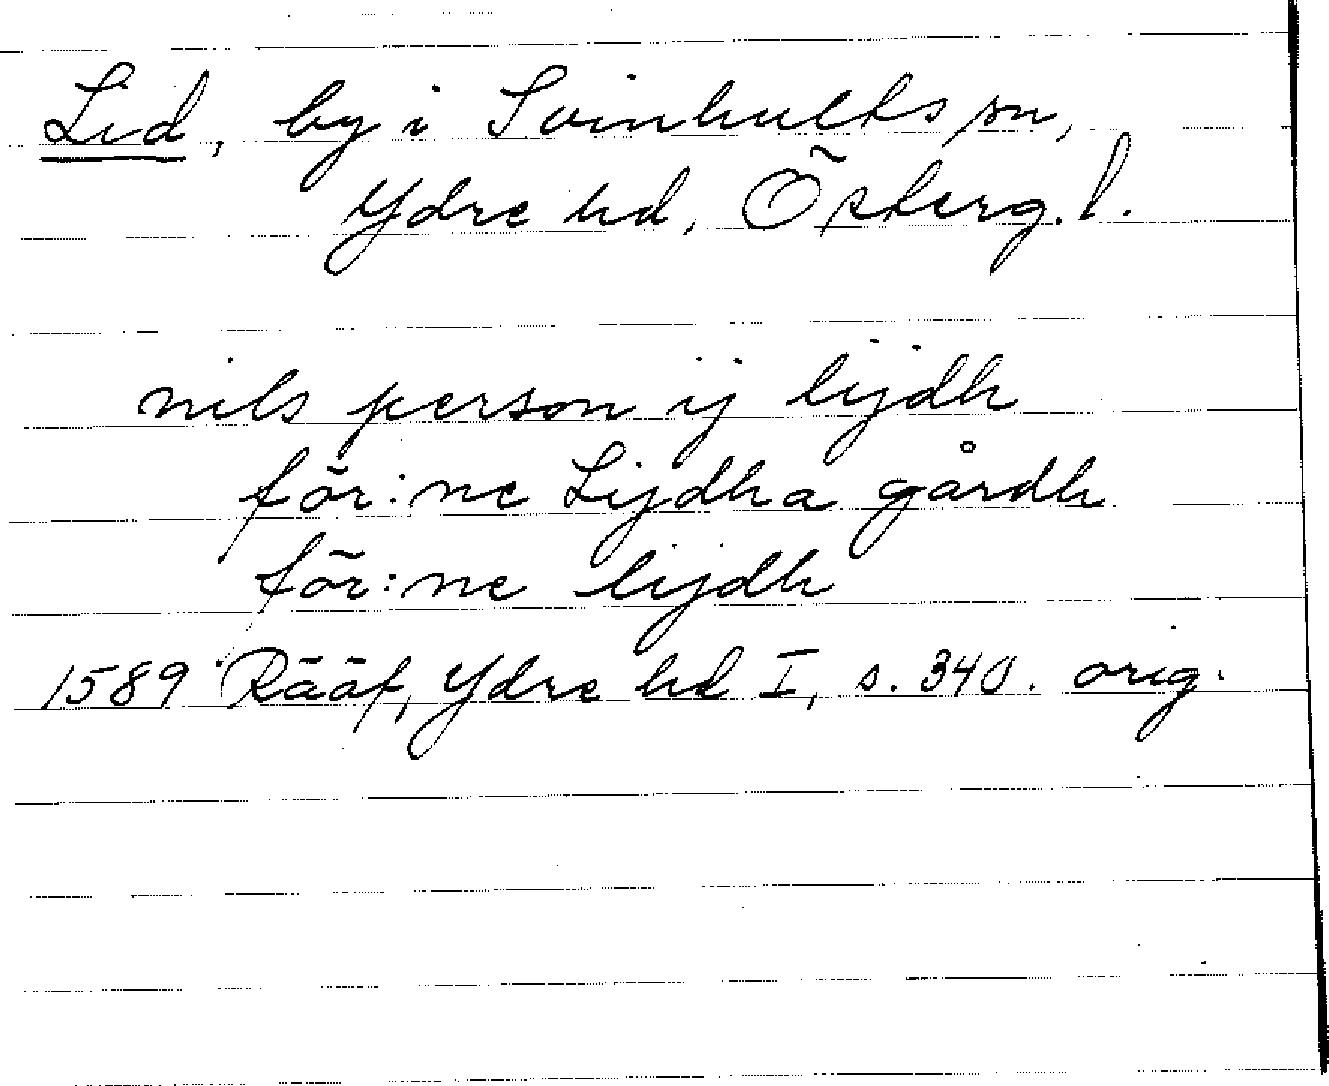 Lid, by i Svinhults sn,
Ydre hd, Österg. l.
nils person ij lijdh
för:ne Lijdha gårdh
för:ne lijdh
1589 Rääf, Ydre hd I, s. 340. orig.